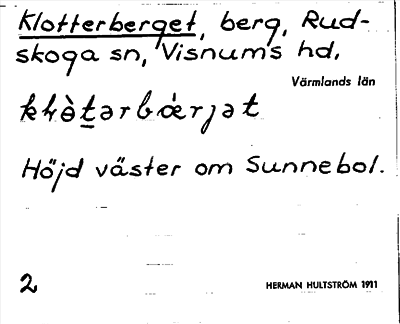 Klotterberget, berg, Rud-
skoga sn, Visnums hd,
Värmlands län
Höjd väster om Sunnebol.
2
HERMAN HULTSTRÖM 1911